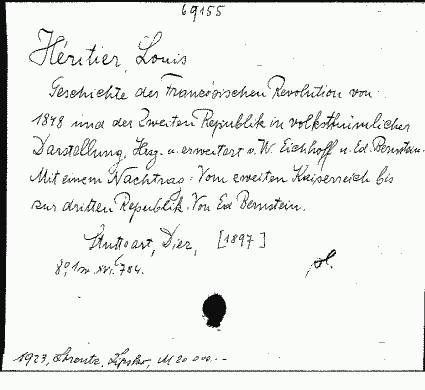 69155
Héritier, Louis
Geschichte der Französischen Revolution von
1848 und der Zweiten Republik in volksthümlicher
Darstellung. Hrsg. u. erweitert v. W. Eichhoff u. Ed. Bernstein.
Mit einem Nachtrag: Vom zweiten Kaiserreich bis
zur dritten Republik. Von Ed Bernstein.
Stuttgart, Dietz, [1897]
8°, XVI. 784.
1923, M 20 000.-